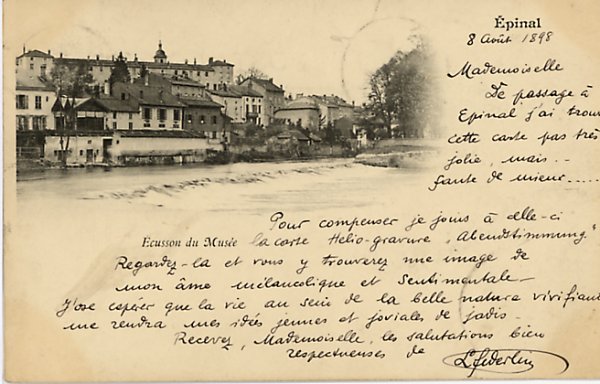 Épinal
8 Août 1898
Mademoiselle
De passage à
Epinal j'ai trouv
cette carte pas très
jolie, mais...
faute de mieux.....
Pour compenser je joins à celle-ci
Écusson du Musée la carte Hélio-gravure „Abendstimmung"
Regardez-la et vous y trouverez une image de
mon âme mélancolique et sentimentale-
J'ose espérer que la vie au sein de la belle nature vivifiant
me rendra mes idées jeunes et joviales de jadis-
Recevez, Mademoiselle, les salutations bien
respectueuses de L. Federlin